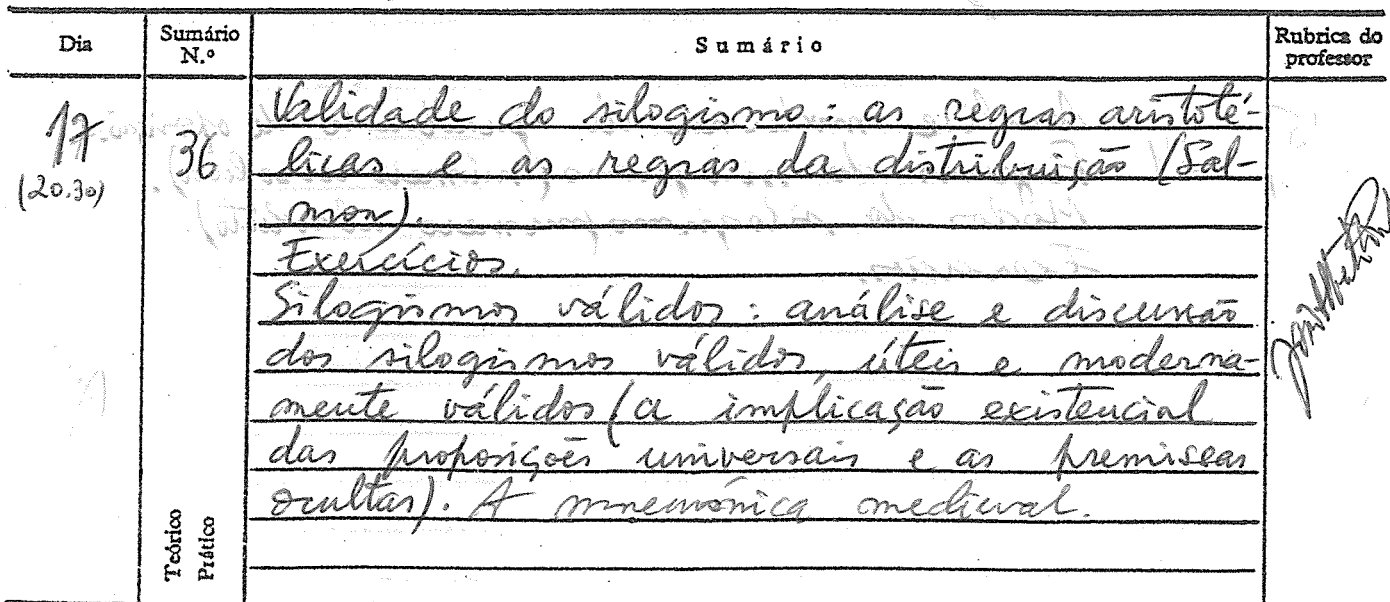 Dia Sumário N.º Sumário Rubrica do professor
17 (20.30) 36 Validade do silogismo: as regras aristoté-
licas e as regras da distribuição (Sal-
mon).
Exercícios.
Silogismos válidos: análise e discussão
dos silogismos válidos, úteis e moderna-
mente válidos (a implicação existencial
das proposições universais e as premissas
ocultas). A mnemónica medieval.
Teórico
Prático